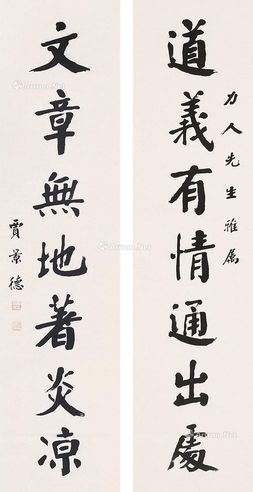 道義有情通出處
力人先生雅屬
文章無地著炎涼
賈景德